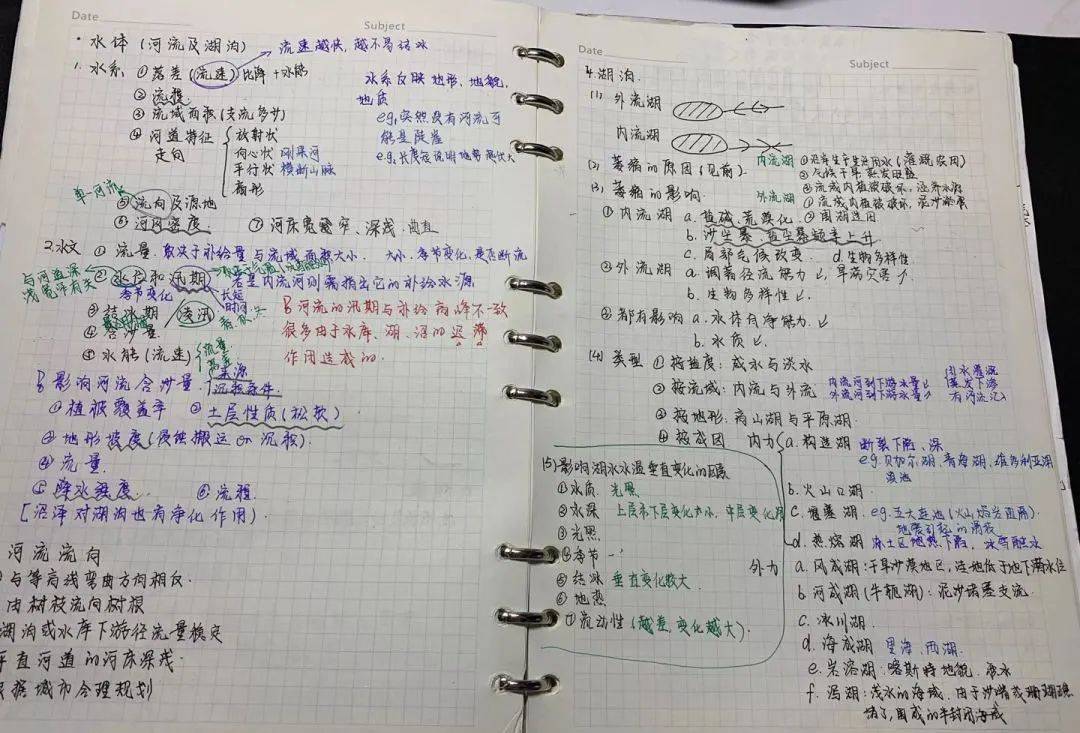 Date
Subject
·水体(河流及湖泊) 流速越快,越不易结冰
1.水系 ①落差(流速)比降+水能
②流程
③流域面积(支流多少)
④河道特征 走向
放射状
向心状 刚果河
平行状 横断山脉
扇形
水系反映地形、地貌、
地质
e.g.突然没有河流可
能是陡崖
⑤流向及源地
⑥河网密度 ⑦河床宽窄、深浅、曲直
2.水文 ①流量 取决于补给量与流域面积大小. 大小、季节变化、是否断流
与河道深
浅宽窄有关
②水位和汛期 若是内流河则需指出它的补给水源
季节变化
长短
时间
③结冰期 凌汛
④含沙量
⑤水能(流速) 流量
河流的汛期与补给高峰不一致
很多由于水库、湖、沼的迟滞
作用造成的.
影响河流含沙量
来源
沉积条件
①植被覆盖率 ②土层性质(松软)
③地形坡度(侵蚀搬运or沉积).
④流量.
⑤降水强度. ⑥流程.
[沼泽对湖泊也有净化作用).
河流流向
与等高线弯曲方向相反.
由树枝流向树根
湖泊或水库下游径流量稳定
平直河道的河床深浅.
根据城市合理规划
Date
Subject
4.湖泊.
(1) 外流湖
内流湖
(2) 萎缩的原因(见前).
内流湖 ①沿岸生产生活用水(灌溉农田)
②气候干旱蒸发旺盛
③流域内植被破坏,涵养水源
外流湖 ①流域内植被破坏,泥沙淤积
②围湖造田
(3) 萎缩的影响.
①内流湖 a.盐碱、荒漠化.
b.沙尘暴、盐尘暴频率上升
c.局部气候改变. d.生物多样性
②外流湖 a.调蓄径流能力↓,旱涝灾害↑
b.生物多样性↓.
③都有影响 a.水体自净能力.↓
b.水质↓.
(4) 类型 ①按盐度:咸水与淡水
②按流域:内流与外流
内流河到下游水量↓
外流河到下游水量↑
③按地形:高山湖与平原湖.
④按成因 内力 a.构造湖 断裂下陷,深
e.g.贝加尔湖、青海湖、维多利亚湖
滇池
b.火山口湖.
c.堰塞湖 e.g.五大连池(火山熔岩阻隔).
地震引起的滑坡
d.热熔湖 冻土区地热下陷,冰雪融水
外力 a.风成湖:干旱沙漠地区,洼地低于地下潜水位
b.河成湖(牛轭湖):泥沙堵塞支流.
c.冰川湖.
d.海成湖 里海、西湖.
e.岩溶湖 喀斯特地貌
f.潟湖:浅水的海域,由于沙嘴或珊瑚礁
围成的半封闭海域
(5)影响湖水水温垂直变化的因素
①水质 光照
②水深
③光照
④季节
⑤结冰 垂直变化较大
⑥地热
⑦流动性(越差,变化越大).